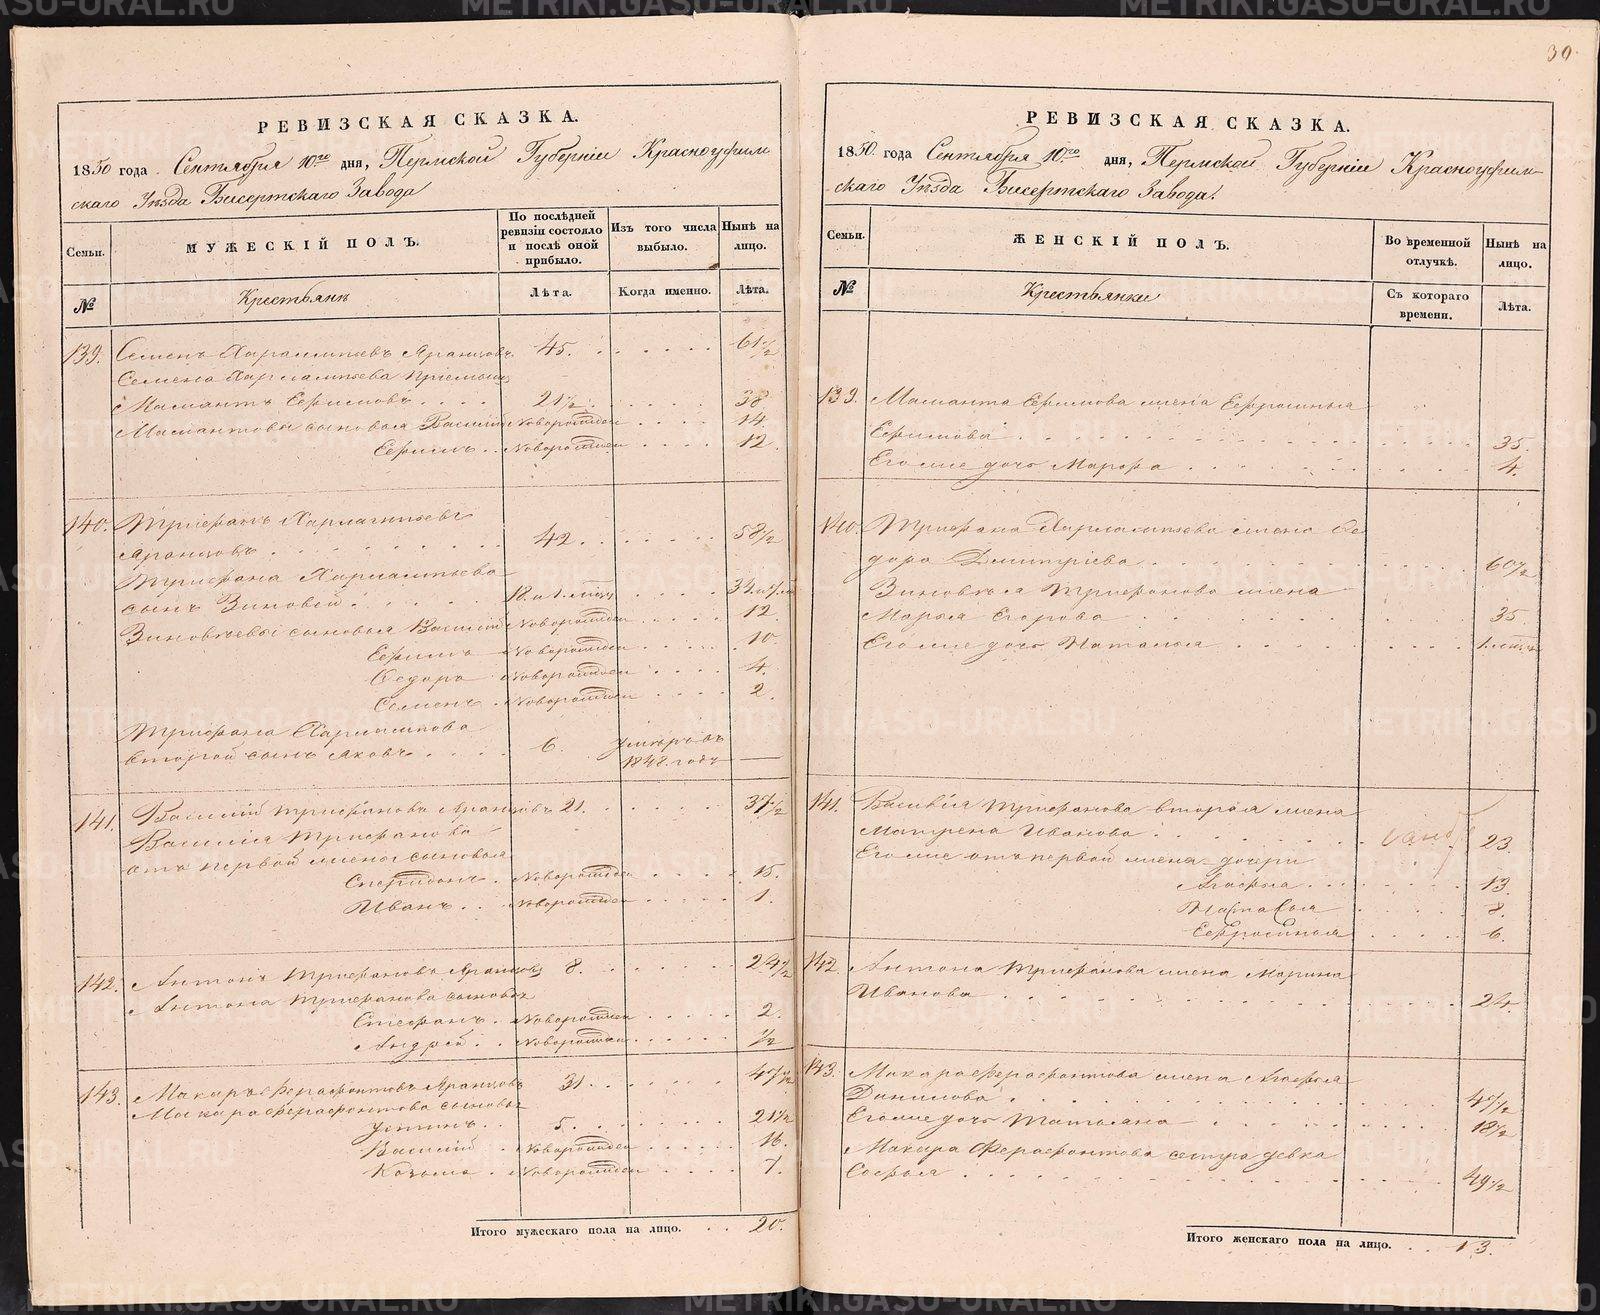 30.
РЕВИЗСКАЯ СКАЗКА.
1850 года Сентября 10го дня, Пермской Губерніи Красноуфим
скаго Уѣзда Бисертскаго Завода
Семьи.
МУЖЕСКІЙ ПОЛЪ.
По послѣдней ревизіи состояло и послѣ оной прибыло.
Изъ того числа выбыло.
Нынѣ на лицо.
№
Крестьянъ
Лѣта.
Когда именно.
Лѣта.
139. Семенъ Харлампіевъ 45. 61½
Семена Харлампьева Пріемышъ
Мамантъ Ефимовъ 21½ 38
Мамантовы сыновья Василій Новорожден 14.
Ефимъ Новорожден 12.
140. Трифанъ Харлампіевъ
42. 58½
Трифана Харлампьева
сынъ Зиновей 18
Зиновьевы сыновья Василій Новорожден 12.
Ефимъ Новорожден 10.
Федоръ Новорожден 4.
Семенъ Новорожден 2.
Трифана Харлампова
второй сынъ Яковъ 6. умеръ въ
1848 годѣ —
141. Василій Трифановъ 21. 37½
Василія Трифанова
отъ первой жены сыновья
Спиридонъ Новорожден 15.
Иванъ Новорожден 1.
142. Антонъ Трифановъ 8. 24½
Антона Трифанова сыновья
Стефанъ Новорожден 2.
Андрей Новорожден ½
143. Макаръ Ферафонтовъ 31. 47½
Макара Ферафонтова сыновья
Устинъ 5. 21½
Василій Новорожден 16.
Козьма Новорожден 7.
Итого мужескаго пола на лицо. 20.
РЕВИЗСКАЯ СКАЗКА.
1850. года Сентября 10.го дня, Пермской Губерніи Красноуфим-
скаго Уѣзда Бисертскаго Завода.
Семьи.
ЖЕНСКІЙ ПОЛЪ.
Во временной отлучкѣ.
Нынѣ на лицо.
№
Крестьянки
Съ котораго времени.
Лѣта.
139. Маманта Ефимова жена Ефросинья
Ефимова 35.
Его же дочь Марфа 4.
140. Трифана Харлампьева жена Ѳе
дора Дмитріева 60½
Зиновья Трифанова жена
Марья Егорова 35
Его же дочь Наталья
141. Василія Трифанова вторая жена
Матрена Иванова 23.
Его же отъ первой жены дочери
Агафья 13.
Наталья 8.
Ефросинья 6.
142. Антона Трифанова жена Марина
Иванова 24.
143. Макара Ферафонтова жена Агафья
Данилова 47½
Его же дочь Татьяна 18½
Макара Ферафонтова сестра девка
Софья 49½
Итого женскаго пола на лицо. 13.
METRIKI.GASO-URAL.RU